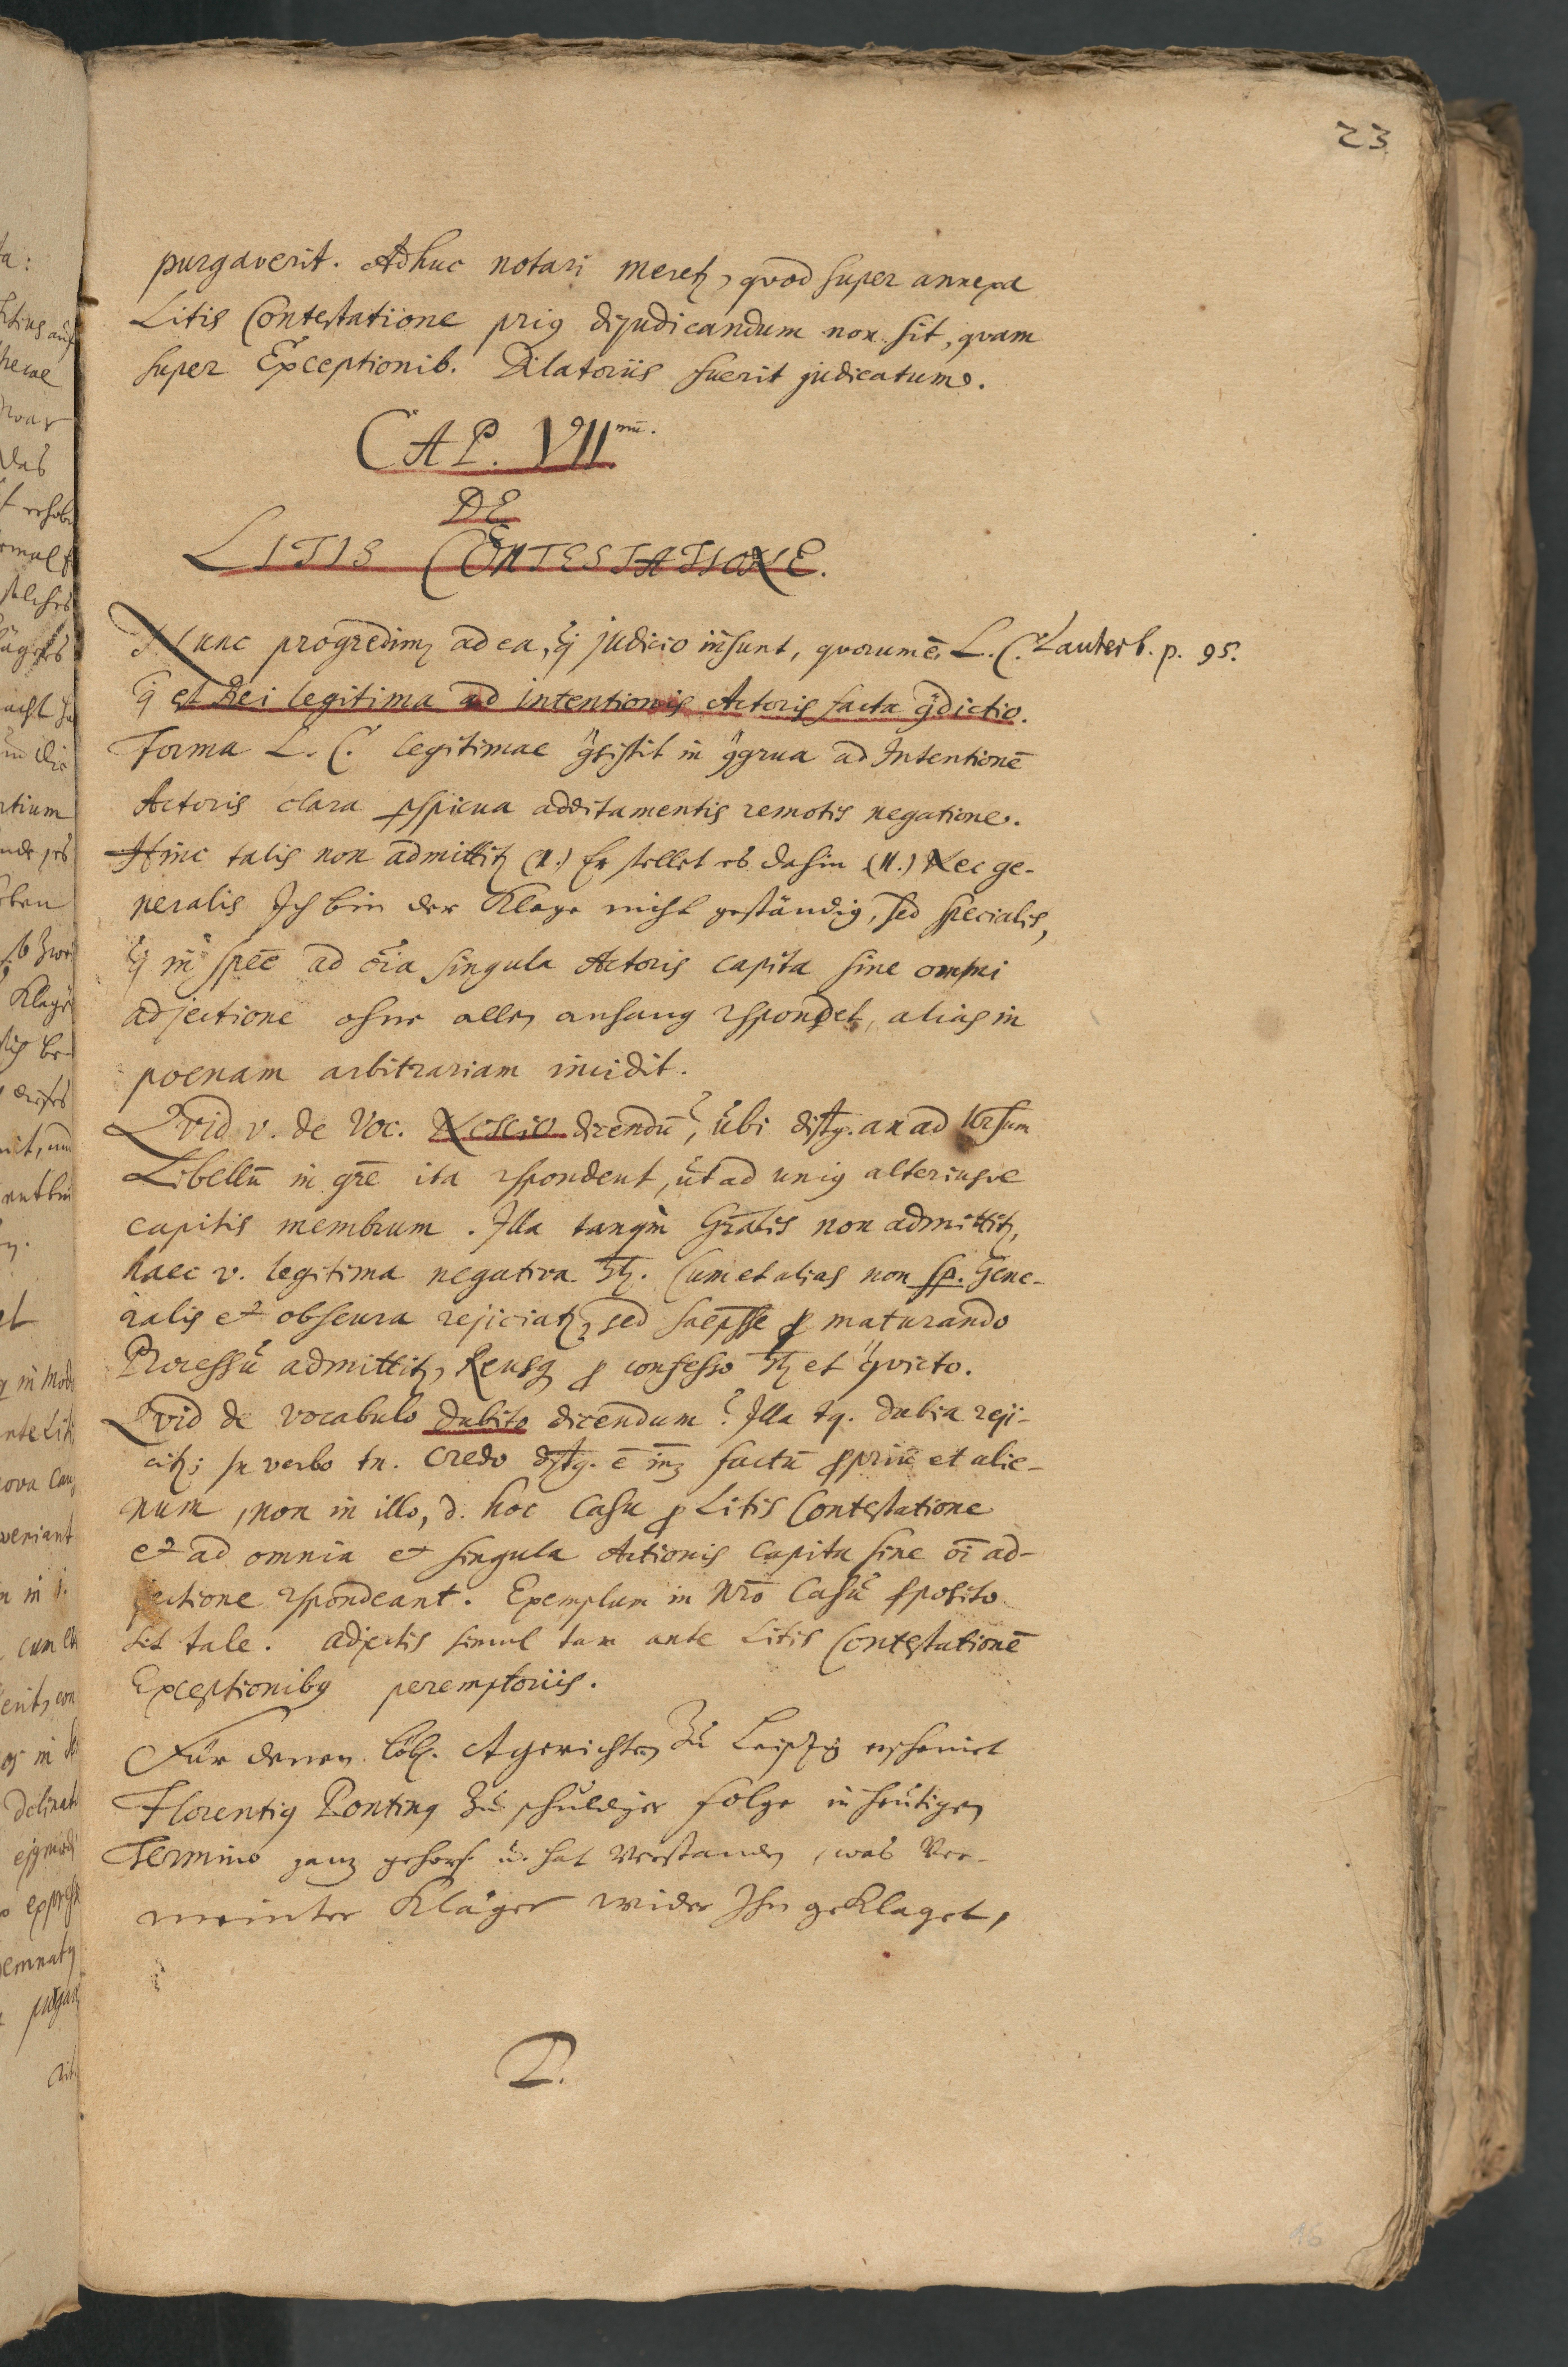 23
purgaverit. Adhuc notari meretꝫ, qvod super annexa
Litis Contestatione priꝰ dijudicandum non sit, qvam
super Exceptionib. Dilatoriis fuerit judicatum.
CAP. VII mū.
DE
LITIS CONTESTATIONE.
Nunc progredimꝰ ad ea, q̃ judicio insunt, qvorum ē L. C. Lauterb. p. 95.
q̃ est Rei legitima ad intentionis Actoris facta ꝯdictio.
Forma L. C. legitimae ꝯsistit in ꝯgrua ad Intentionē
Actoris clara ꝑspicua additamentis remotis negatione.
Hinc talis non admittitꝫ (I.) Er stellet es dahin (II.) Nec ge-
neralis Ich bin der Klage nicht geständig, sed specialis,
q̃ in specē ad oīa singula Actoris capita sine omni
adjectione ohne allen anhang rspondet, alias in
poenam arbitrariam incidit.
Qvid v. de Voc. Nescio dicendū? Ubi distg. an ad
Libellū in gr̄e ita rspondent, ut ad uniꝰ alteriusve
capitis membrum. Illa tanqm̀ Gr̄alis non admittitꝫ,
haec v. legitima negativa . Cum et alias non sp. Gene-
ralis et obscura rejiciatꝫ, sed saepsse ꝓ maturando
Processū admittitꝫ, Reusq ꝓ confesso et ꝯvicto.
Qvid de vocabulo dubito dicendum? Illa tq. dubia reji-
citꝫ; In verbo tn. Credo dstg. ē īnꝫ factū ꝓpriū et alie-
num, non in illo, d. hoc Casu ꝓ Litis Contestatione
et ad omnia et singula Actionis Capita sine oī ad-
jectione rspondeant. Exemplum in Nr̄o Casū ꝓposito
sit tale. adjectis simul tam ante Litis Contestationē
Exceptionibꝰ peremptoriis.
Für denen löbl. Agerichten zu Leipzig erscheinet
Florentiꝰ Pontinꝰ zu schuldiger folge in heutigen
Termino ganz gehors. u. hat verstanden, was Ver-
meinter Kläger wider Ihn geklaget,